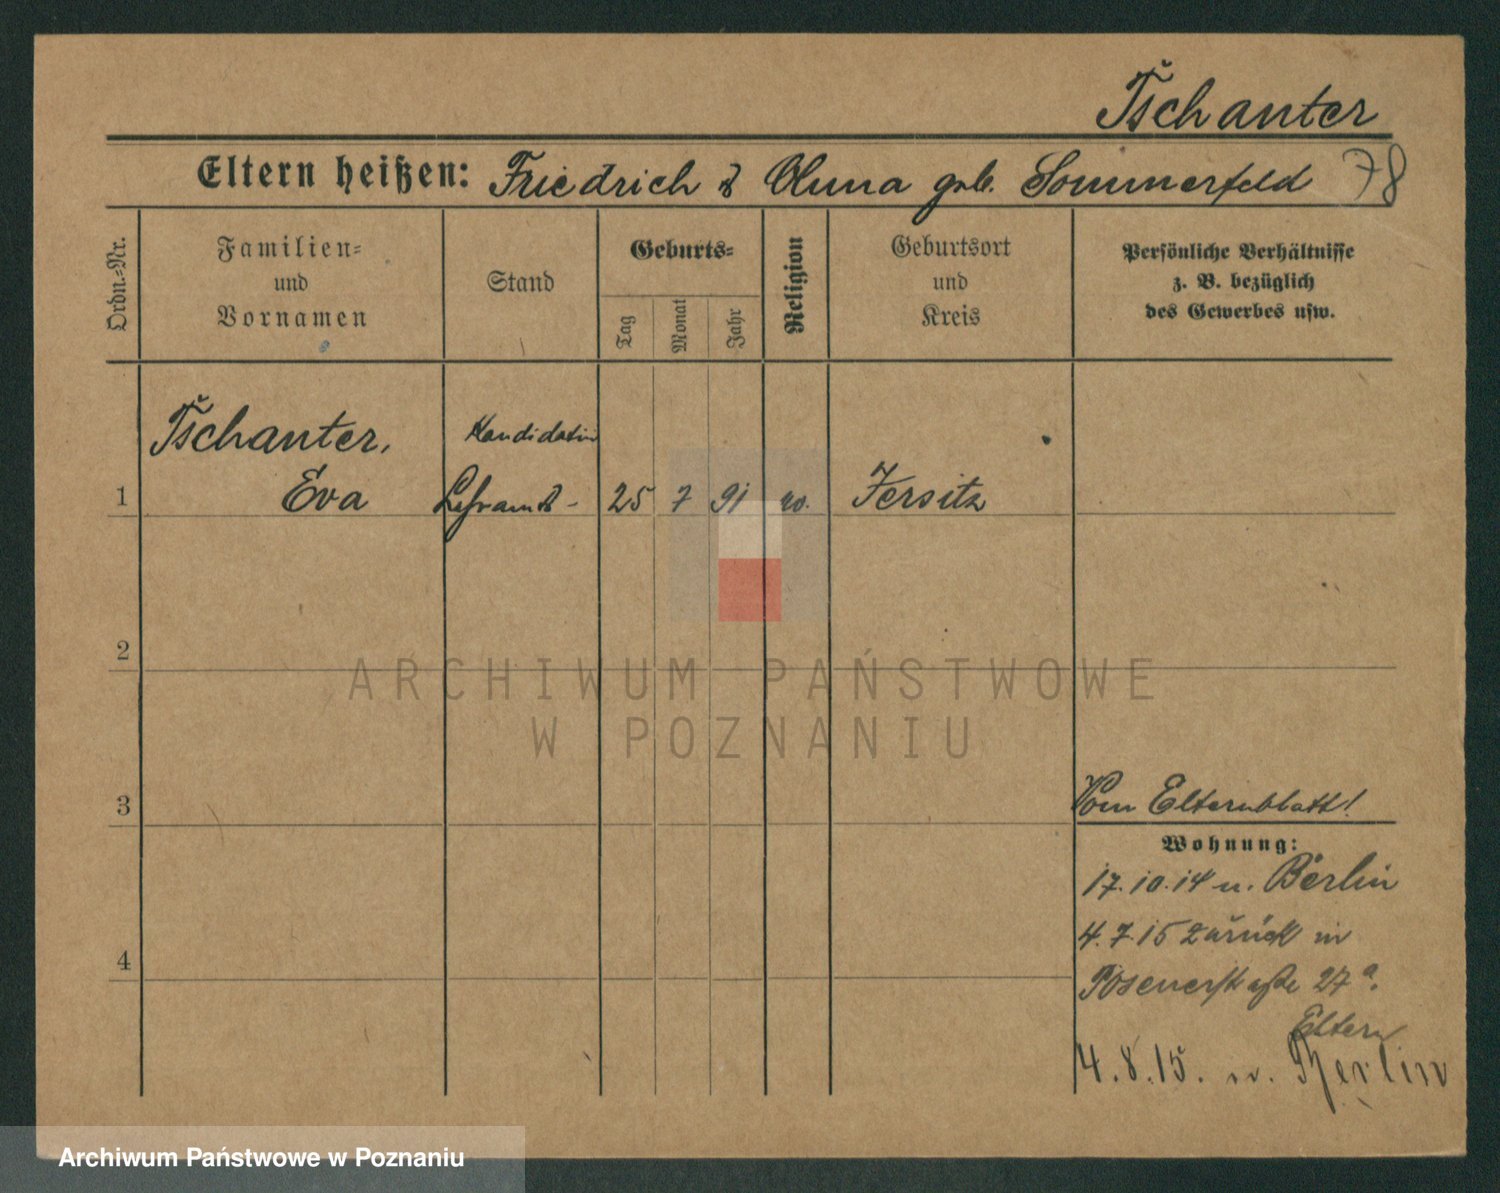 Tschanter
Eltern heißen: Friedrich & Anna geb. Sommerfeld 78
Ordn.-Nr.
Familien-
und
Vornamen
Stand
Geburts-
Tag
Monat
Jahr
Religion
Geburtsort
und
Kreis
Persönliche Verhältnisse
z. B. bezüglich
des Gewerbes usw.
Tschanter, Kandidatin
1 Eva Lehramts- 25 7 91 Jersitz
2
3
Vom Elternblatt!
Wohnung:
17.10.14 n. Berlin
4.7.15 zurück in
4
Posenerstraße 27a.
Eltern
4.8.15. n. Berlin
ARCHIWUM PAŃSTWOWE
W POZNANIU
Archiwum Państwowe w Poznaniu